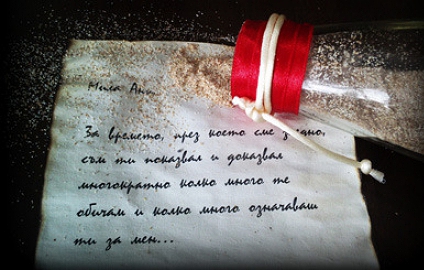 Мила Ани,
За времето, през което сме заедно,
съм ти показвал и доказвал
многократно колко много те
обичам и колко много означаваш
ти за мен...